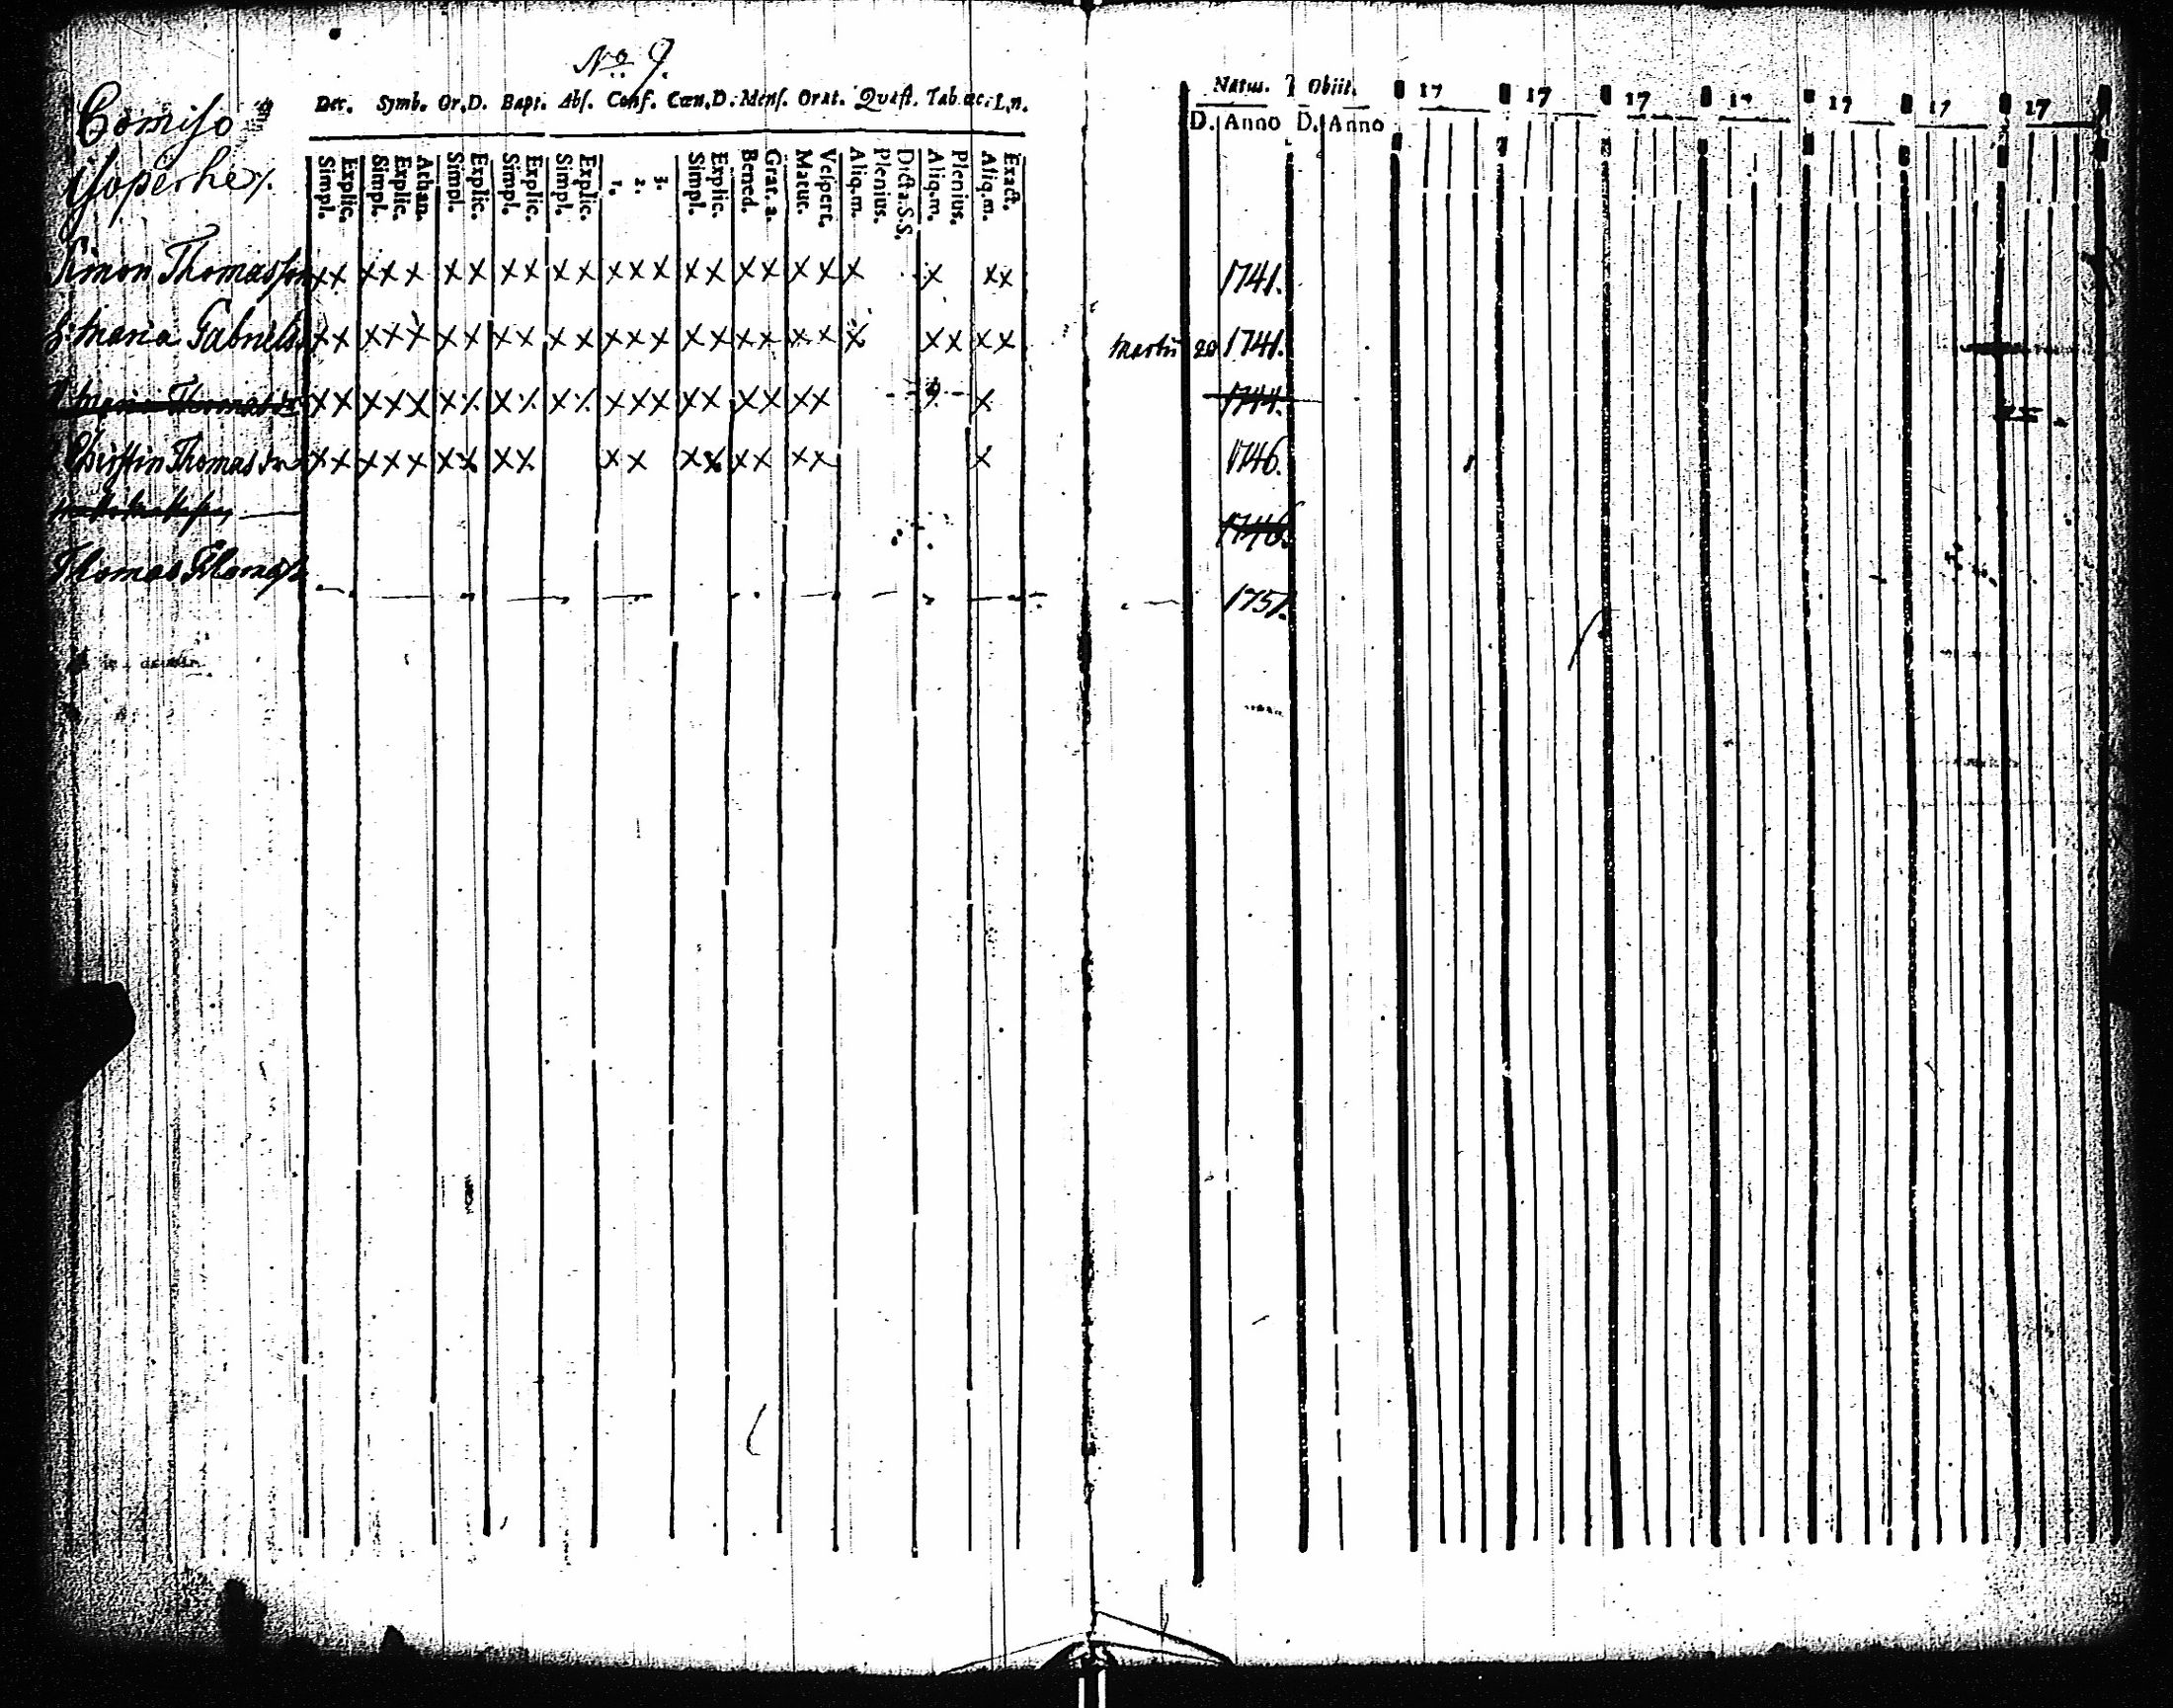 No 9.
Comiso
Dec. Symb. Or.D. Bapt. Abs. Conf. Cœn.D. Mens. Orat. Quæst. Tab. œc. L.n.
Simpl. Explic. Simpl. Explic. Athan. Simpl. Explic. Simpl. Explic. Simpl. Explic. 1. 2. 3. Simpl. Explic. Bened. Grat. a. Matut. Vespert. Aliq.m. Plenius. Dicta.S.S. Aliq.m. Plenius. Aliq.m. Exact.
Natus. Obiit. 17 17 17 17 17 17 17
D. Anno D. Anno
Simon Thomasson x x x x x x x x x x x x x x x x x x x x x x x x 1741.
Maria x x x x x x x x x x x x x x x x x x x x x x x x x Martii 20 1741.
Maria Thomasdr x x x x x x x x x x x x x x x x x x x x x 1744.
Christin Thomasdr x x x x x x x x x x x x x x x x x x x 1746.
1746
Thomas Thomass 1751.